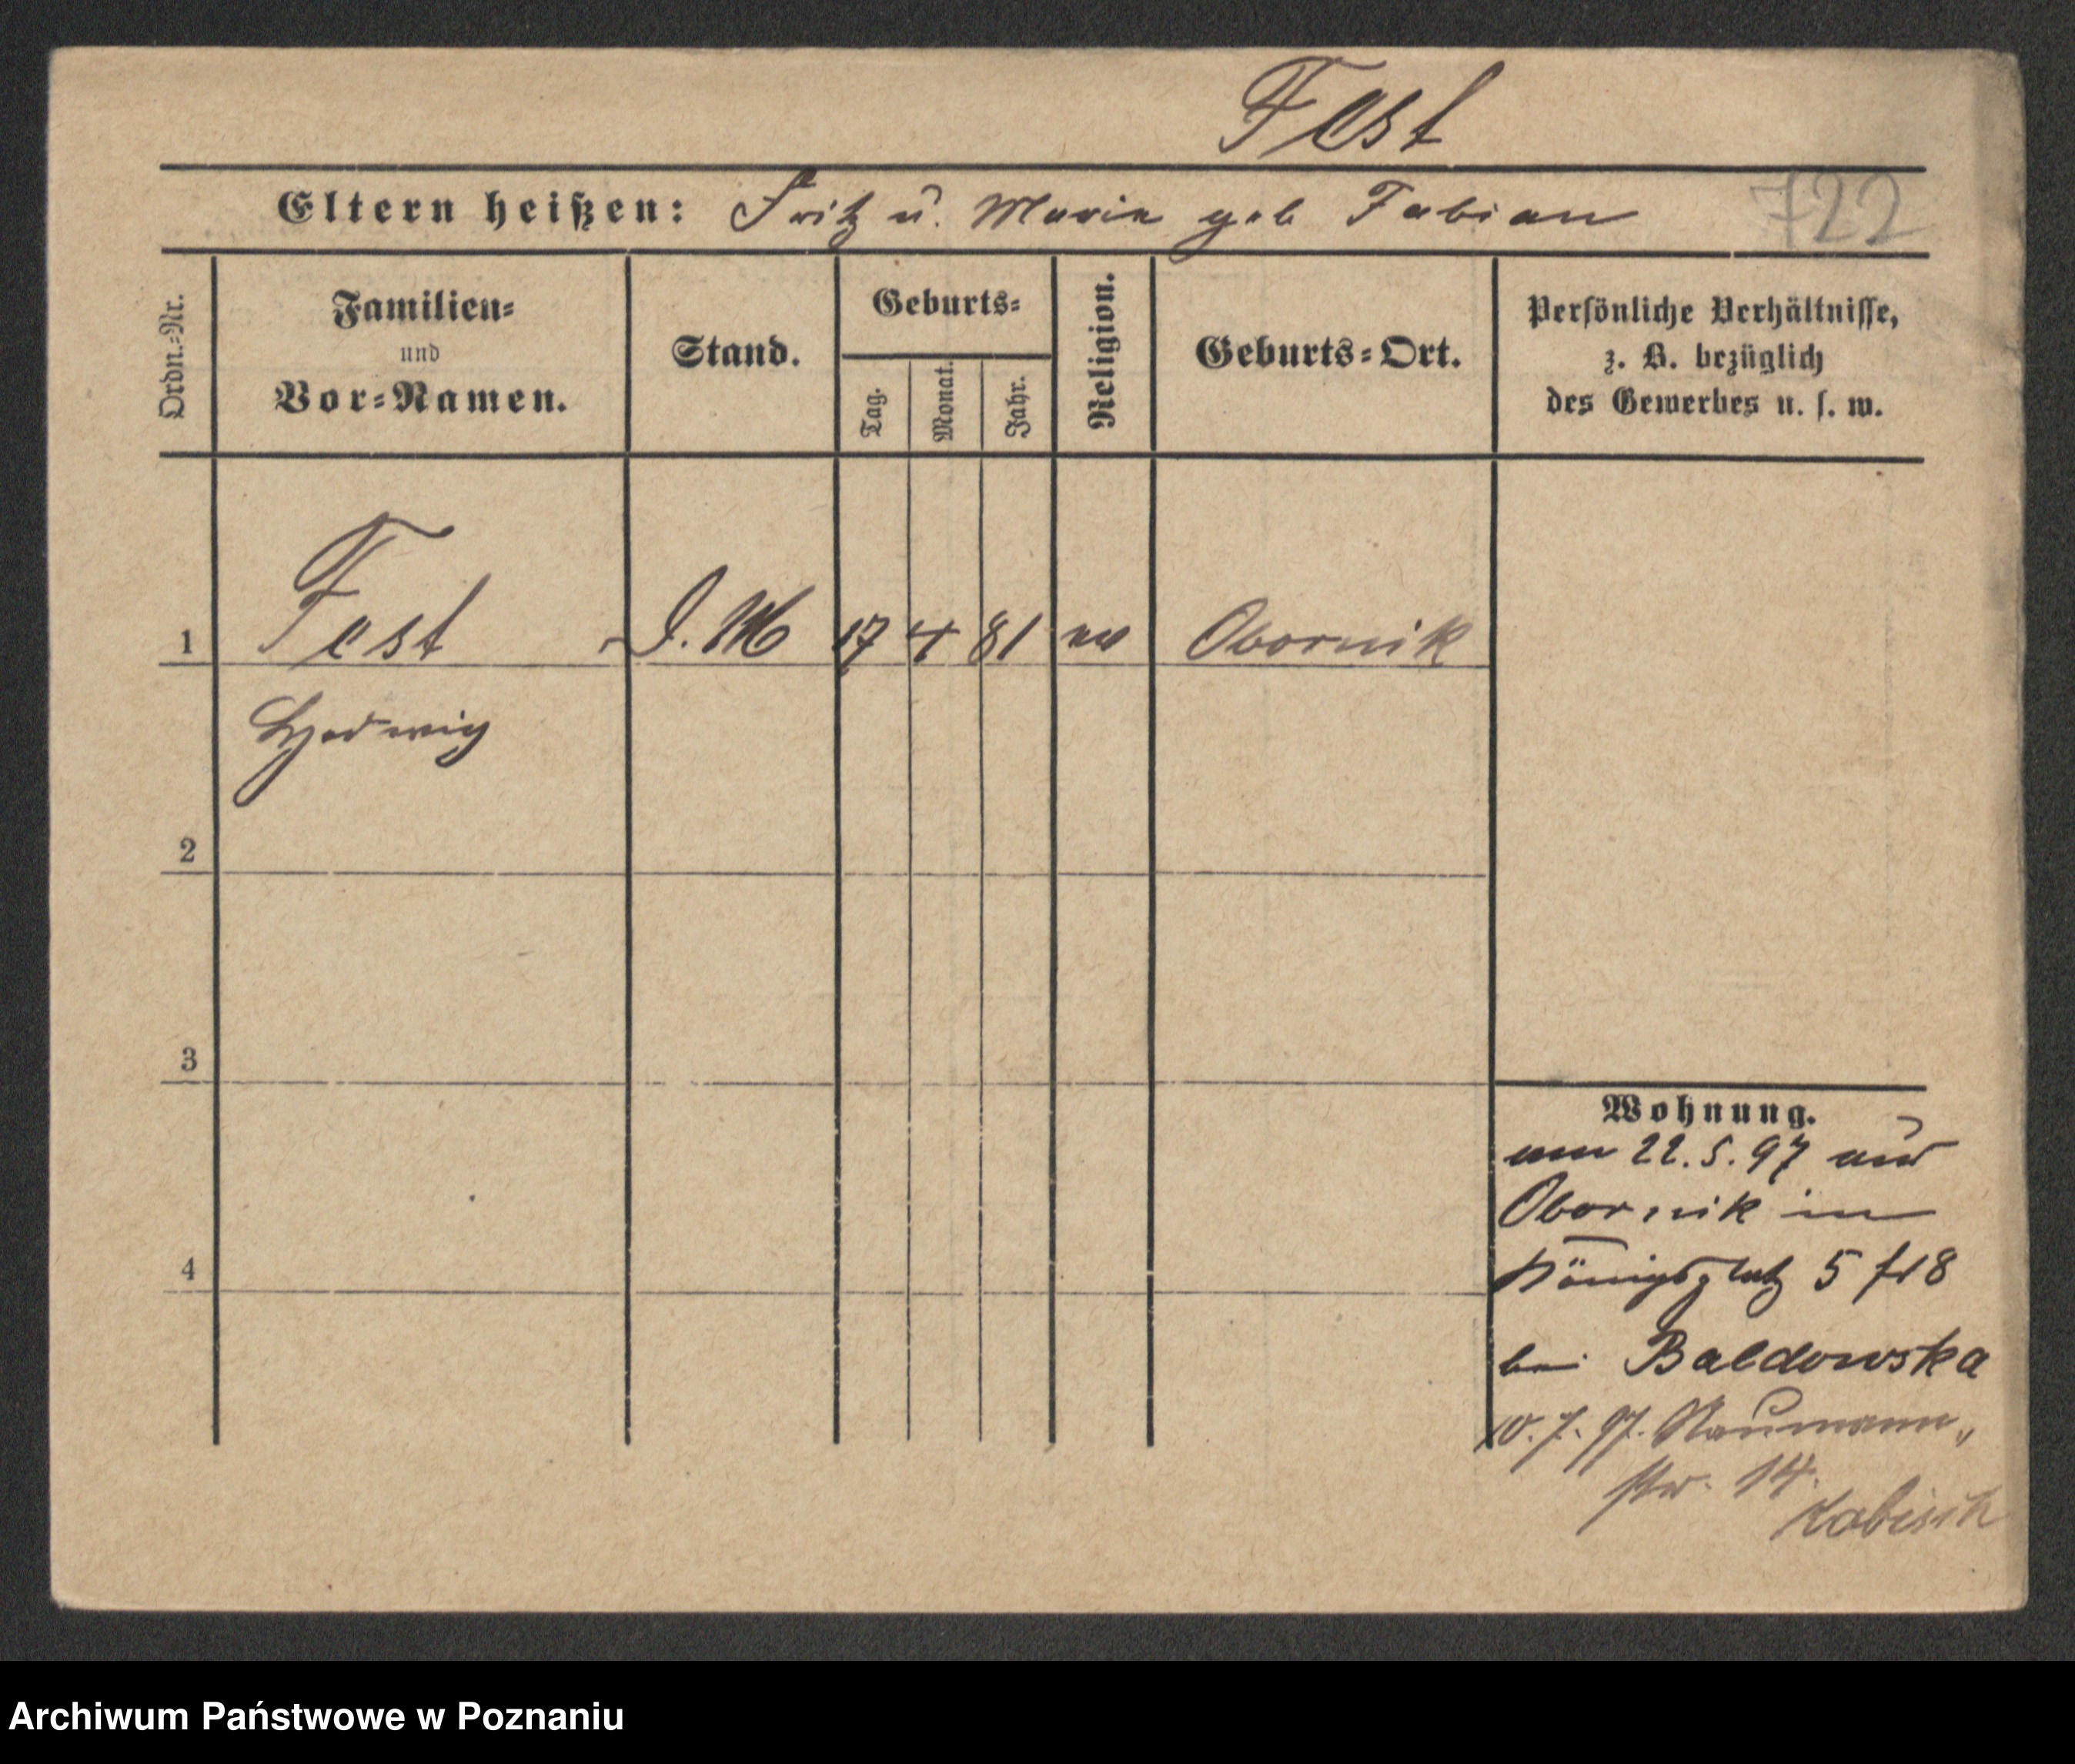 Fest
Eltern heißen: Fritz u. Marie geb Fabian
722
Ordn.-Nr.
Familien-
und
Vor-Namen.
Stand.
Geburts-
Tag.
Monat.
Jahr.
Religion.
Geburts-Ort.
Persönliche Verhältnisse,
z. B. bezüglich
des Gewerbes u. s. w.
1 Fest D. M 17 4 81 ev Obornik
Hedwig
2
3
4
Wohnung.
am 22.5.97 aus
Obornik in
Königsplatz 5
bei Baldowska
10.7.97. Naumann„
str. 14.
Archiwum Państwowe w Poznaniu